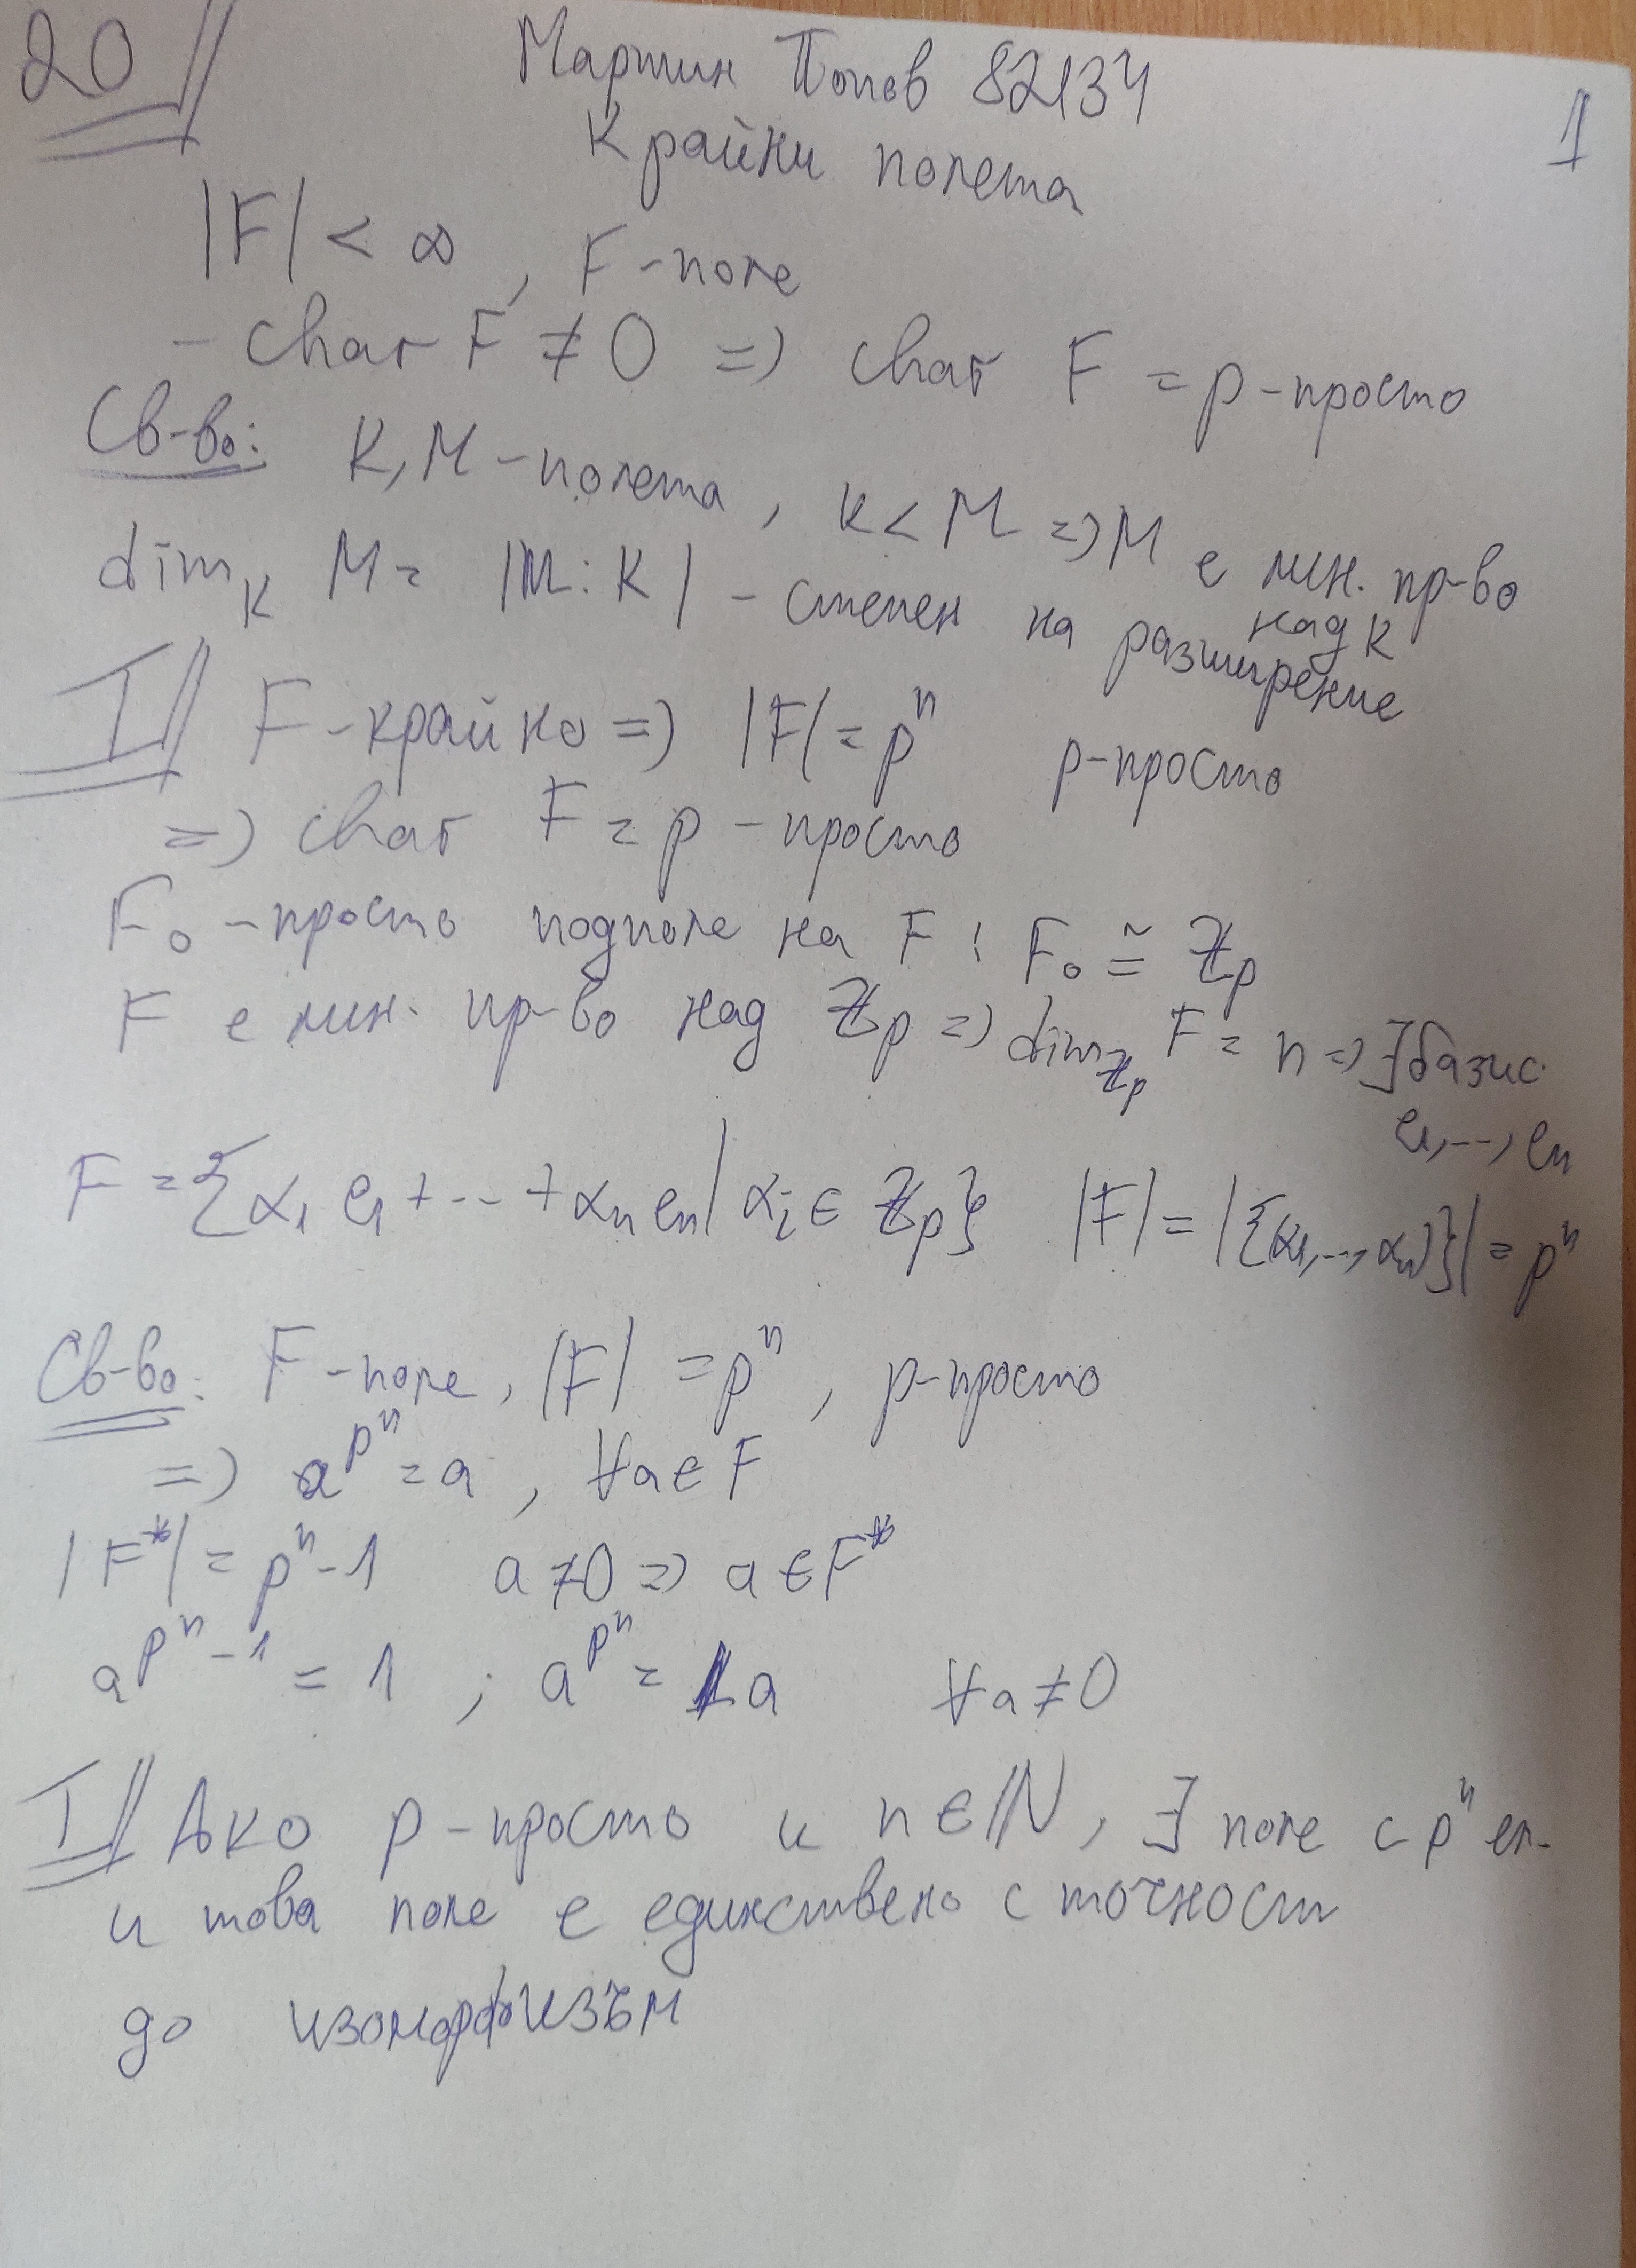 20
Мартин Попов 82134
1
Крайни полета
|F| < ∞, F - поле
- char F ≠ 0 => char F = p - просто
Св-во: K, M - полета, K < M => M е лин. пр-во
над K
dim_K M = |M : K| - степен на разширение
T// F - крайно => |F| = p^n p-просто
=> char F = p - просто
F₀ - просто подполе на F ; F₀ ≅ ℤp
F е лин. пр-во над ℤp => dim_ℤp F = n => ∃ базис
e₁, ..., eₙ
F = {α₁ e₁ + ... + αₙ eₙ | αᵢ ∈ ℤp} |F| = |{(α₁, ..., αₙ)}| = p^n
Св-во: F - поле, |F| = p^n, p-просто
=> a^{p^n} = a, ∀a ∈ F
|F*| = p^n - 1 a ≠ 0 => a ∈ F*
a^{p^n - 1} = 1 ; a^{p^n} = a ∀a ≠ 0
T// Ако p - просто и n ∈ ℕ, ∃ поле с p^n ел.
и това поле е единствено с точност
до изоморфизъм